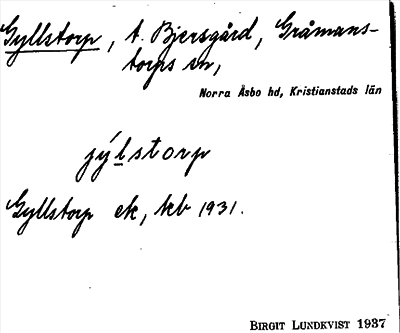 Gyllstorp, t. Bjersgård, Gråmans-
torps sn,
Norra Åsbo hd, Kristianstads län
jýlstorp
Gyllstorp ek, kb 1931.
BIRGIT LUNDKVIST 1937